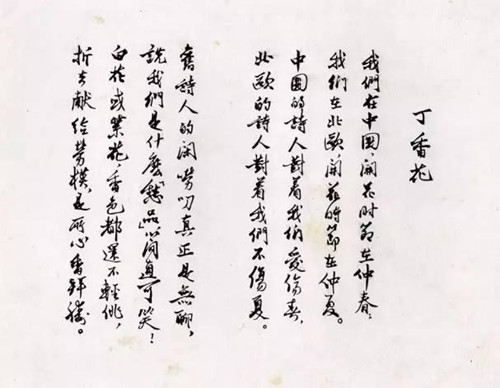 丁香花
我們在中國，開花时節在仲春，
我們在北歐，開花时節在仲夏。
中國的詩人對着我們愛傷春，
北歐的詩人對着我們不傷夏。
舊詩人的闲嘮叨真正是無聊，
說我們是什麼愁品，简直可笑！
白花或紫花，香色都還不輕佻，
折去献给勞模，是心香拜祷。